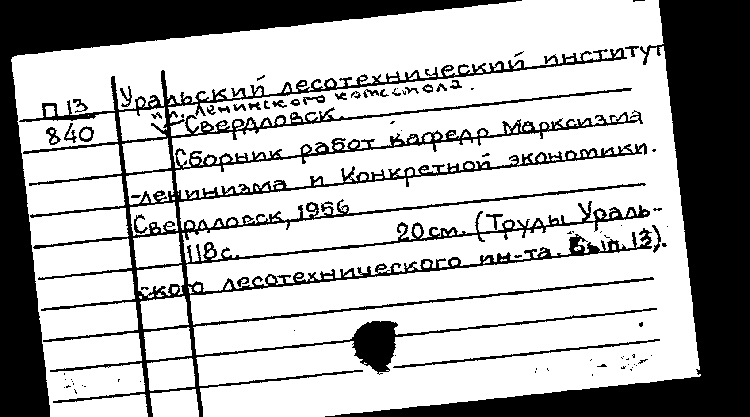 П 13
840
Уральский лесотехнический институт
им. Ленинского комсомола.
Свердловск.
Сборник работ кафедр Марксизма
-ленинизма и Конкретной экономики.
Свердловск, 1956
118 с. 20 см. (Труды Ураль-
ского лесотехнического ин-та. Вып. 13).